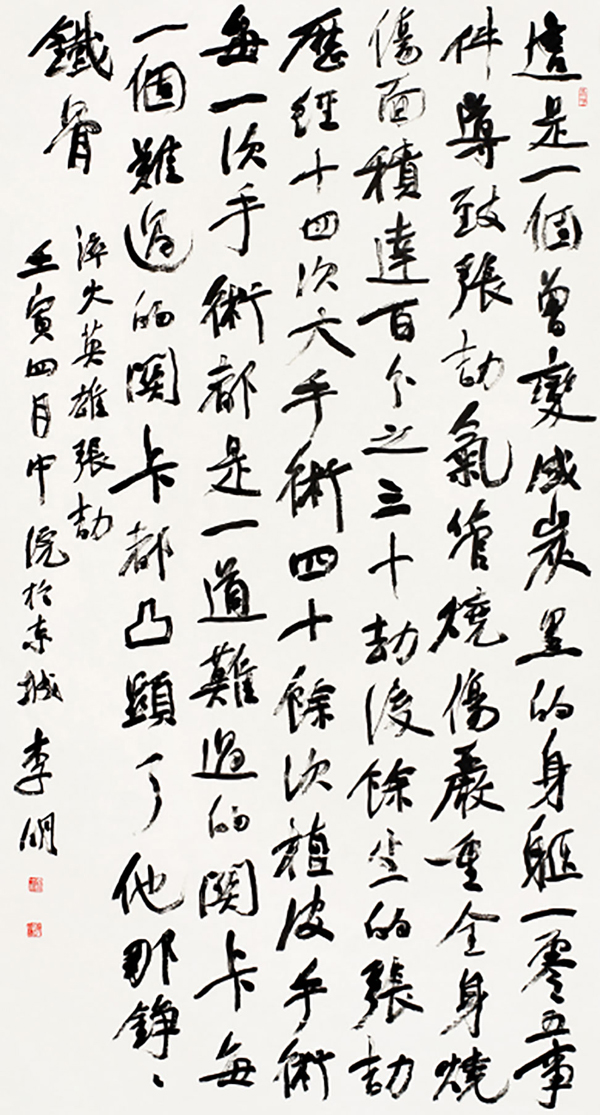 這是一個曾變成炭黑的身軀一零五事
件導致張劼氣管燒傷嚴重全身燒
傷面積達百分之三十劫後餘生的張劼
歷經十四次大手術四十餘次植皮手術
每一次手術都是一道難過的關卡每
一個難過的關卡都凸顯了他那錚々
鐵骨
淬火英雄張劼
壬寅四月中浣於京城李明